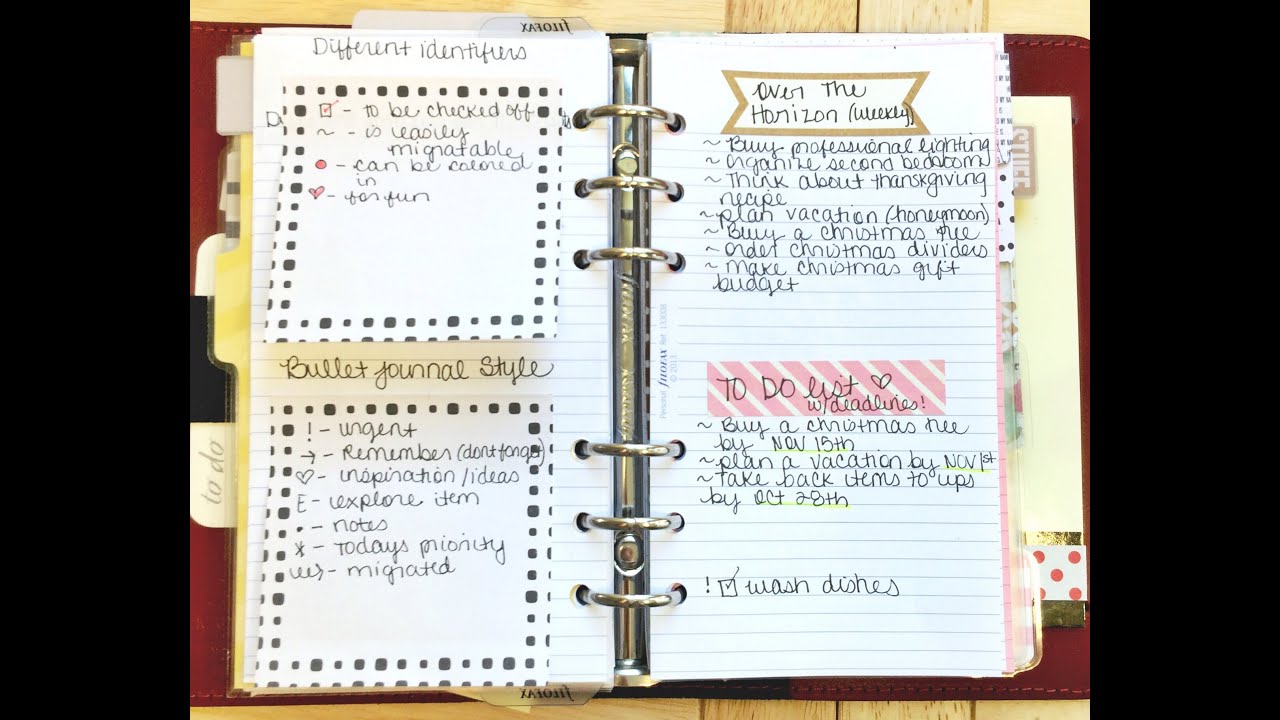 FILOFAX
Different identifiers
☑ - to be checked off
~ - is easily
migratable
● - can be colored
in
♡ - for fun
Bullet Journal Style
! - urgent
→ - Remember (dont forget)
♡ - inspiration/ideas
E - explore item
• - notes
x - Todays priority
- migrated
to do
FILOFAX
Over The
Horizon (weekly)
~ Buy professional lighting
~ organize second bedroom
~ Think about thanskgiving
recipe
~ plan vacation (honeymoon)
~ Buy a christmas tree
~ order christmas dividers
~ make christmas gift
budget
Personal FILOFAX Ref 133008
© 2013
TO DO list ♡
w/deadlines!
~ Buy a christmas tree
by NOV 15th
~ plan a vacation by NOV 1st
~ take back items to ups
by Oct 28th
! ☑ wash dishes
STUFF